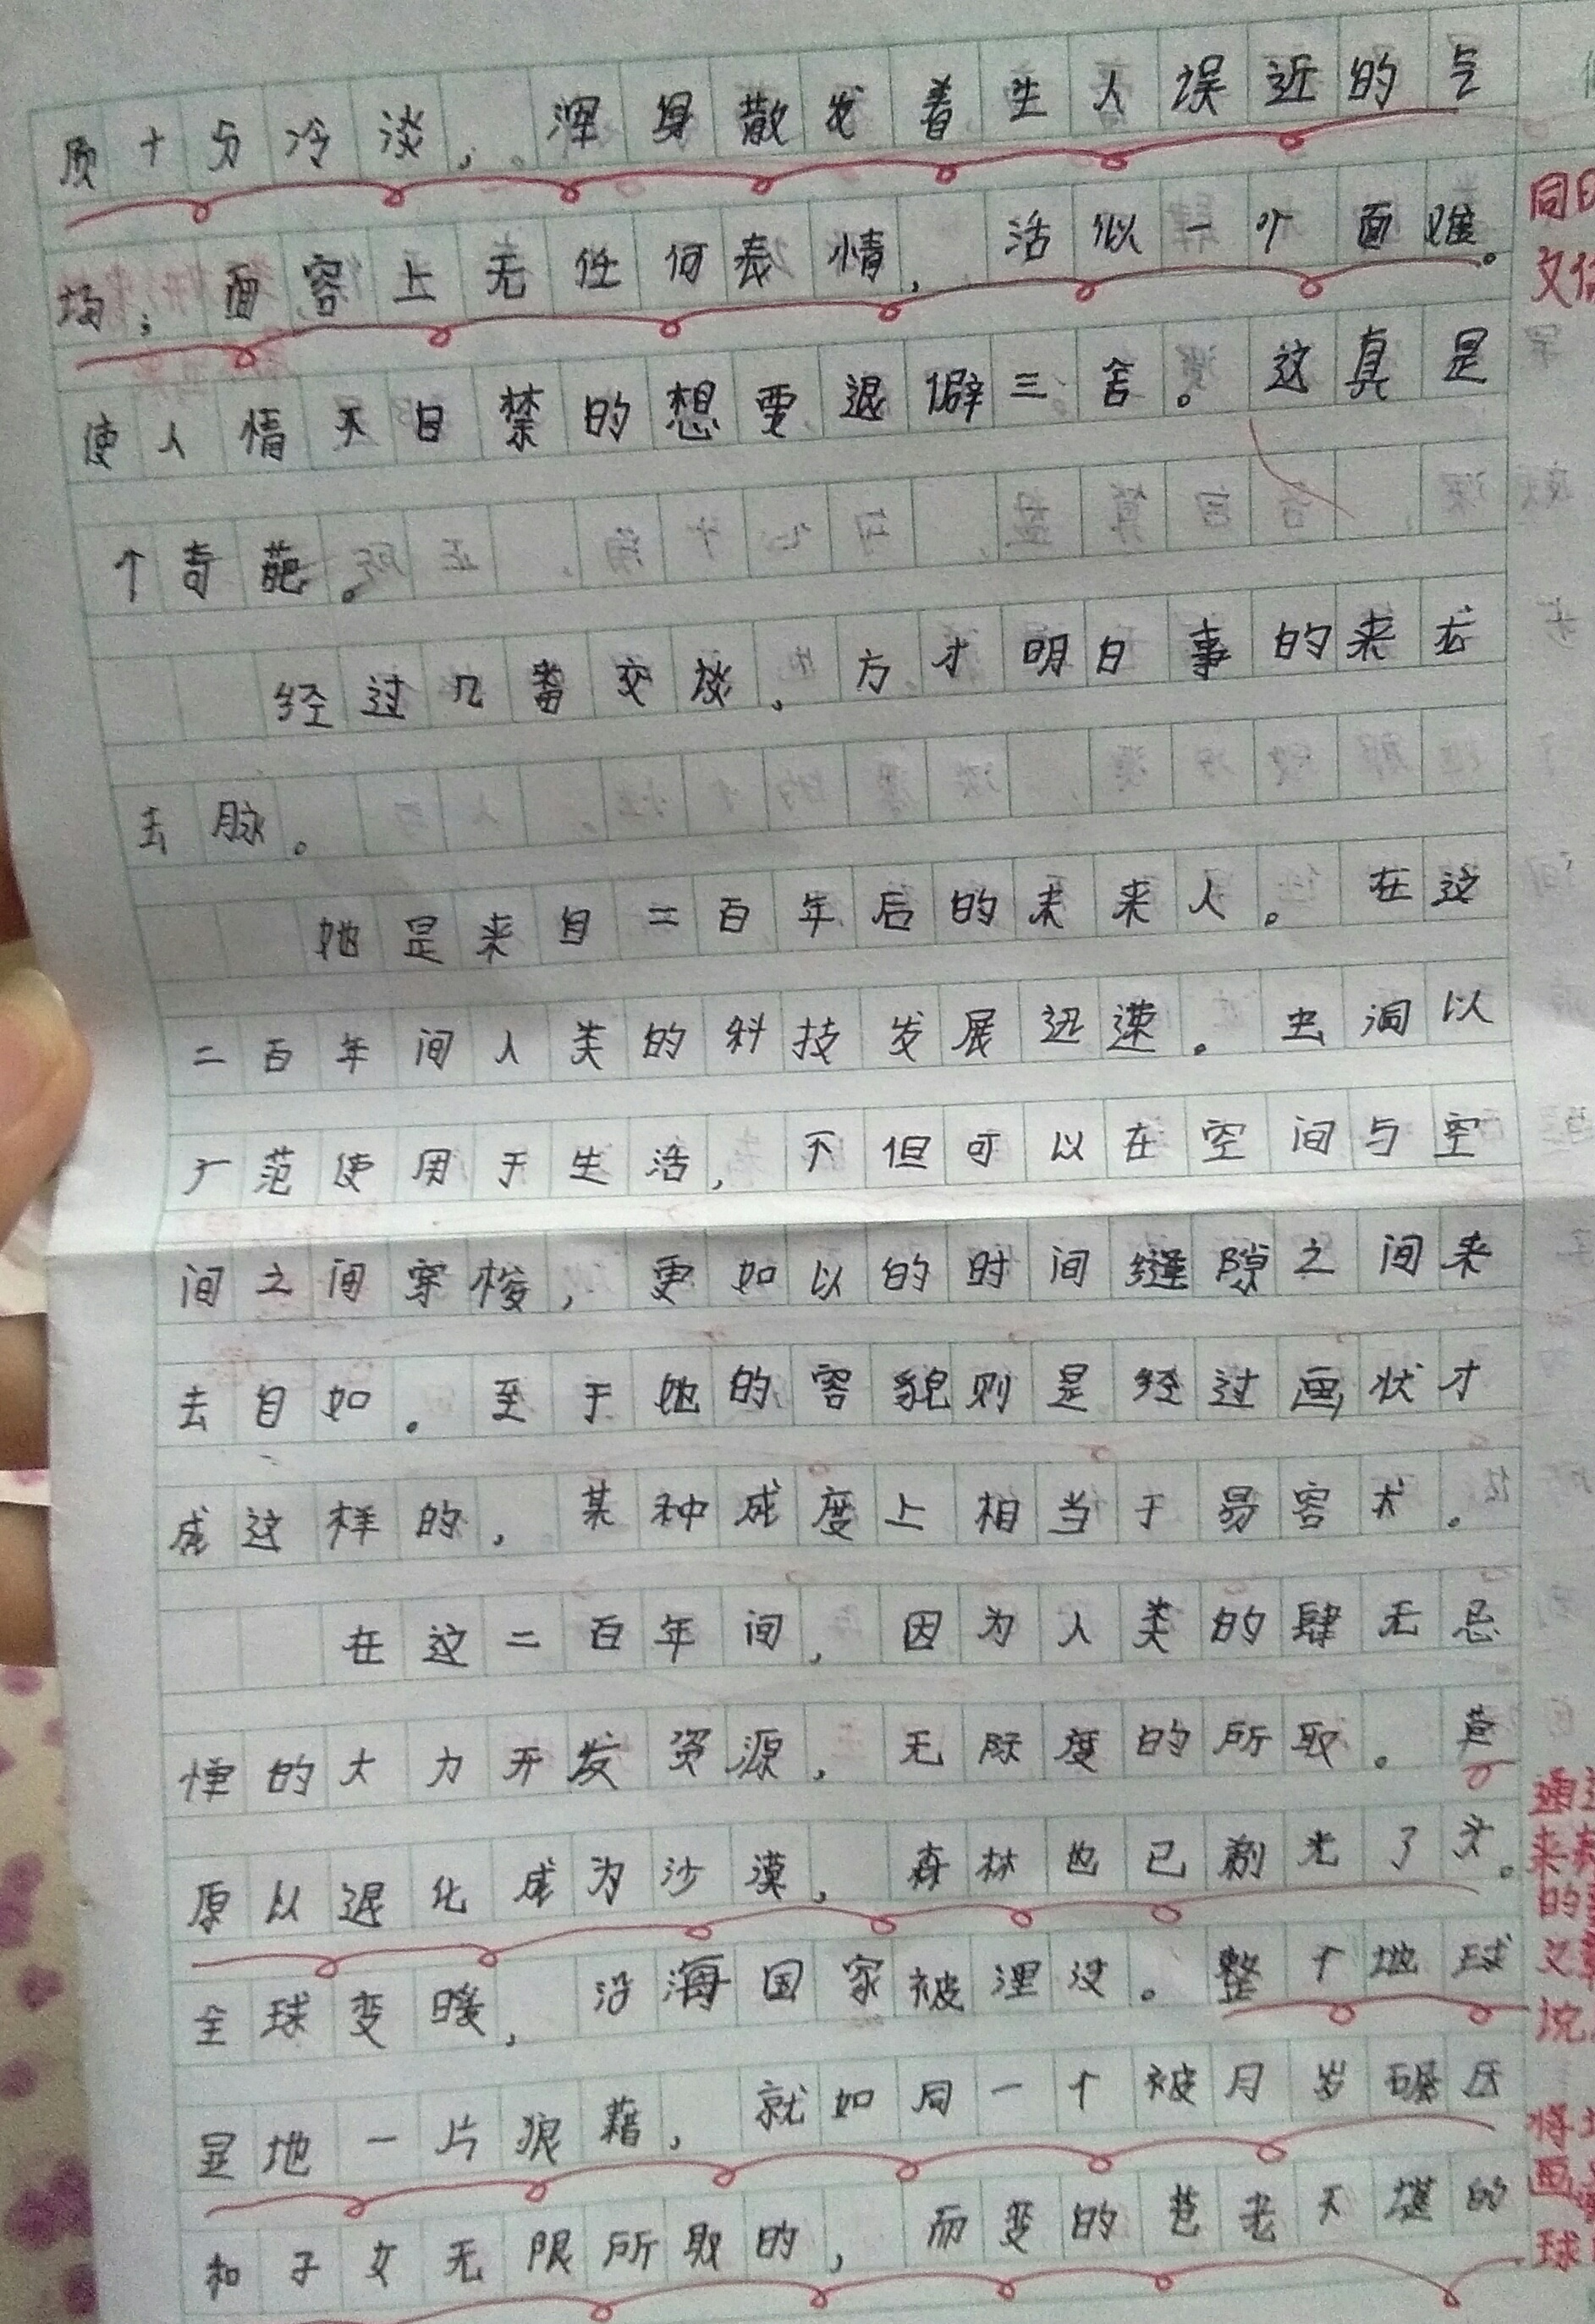 质十分冷淡，浑身散发着生人误近的气
场；面容上无任何表情，活似一个面瘫。
使人情不自禁的想要退僻三舍。这真是
个奇葩。
经过几番交谈，方才明白事的来龙
去脉。
她是来自二百年后的未来人。在这
二百年间人类的科技发展迅速。虫洞以
广范使用于生活，不但可以在空间与空
间之间穿梭，更如以的时间缝隙之间来
去自如。至于她的容貌则是经过画状才
成这样的，某种成度上相当于易容术。
在这二百年间，因为人类的肆无忌
惮的大力开发资源，无际度的所取。草
原以退化成为沙漠，森林也已剃光了头。
全球变暖，沿海国家被湮没。整个地球
显地一片狼藉，就如同一个被月岁碾压
和子女无限所取的，而变的苍老不堪的
同时
文
通过
来
的
又
说
将地
画
球